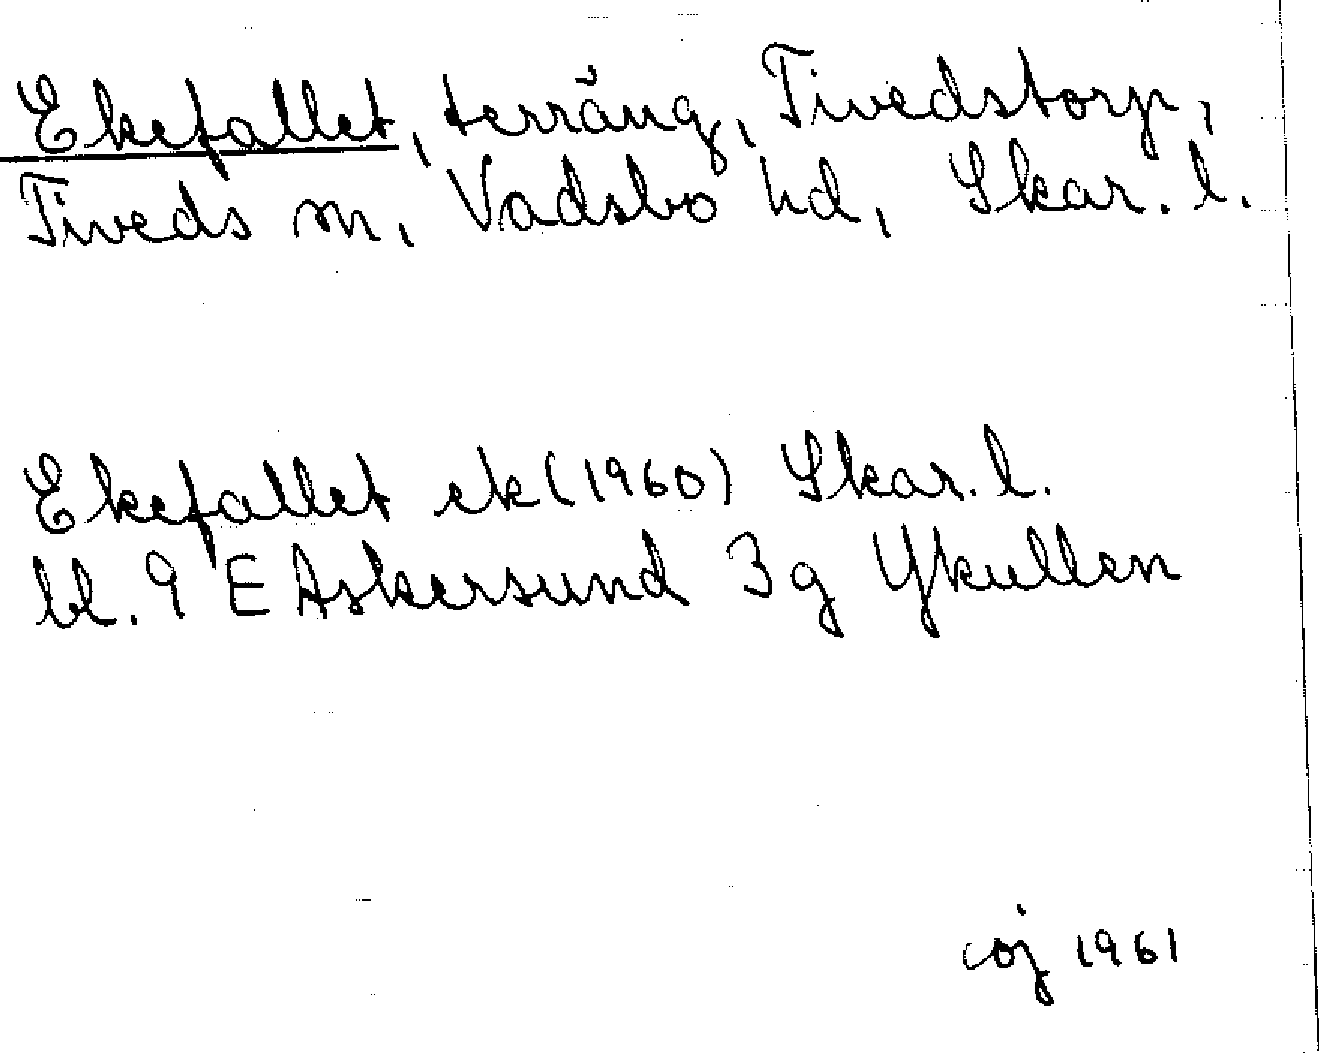 Ekefallet, terräng, Tivedstorp,
Tiveds sn, Vadsbo hd, Skar. l.
Ekefallet ek (1960) Skar. l.
bl. 9 E Askersund 3g Ykullen
coj 1961